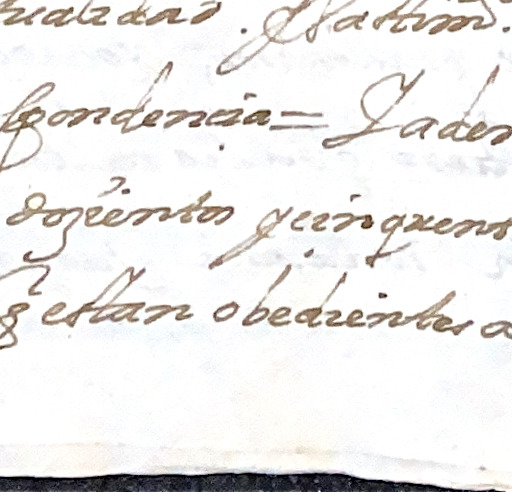 ualidad. y lastim
pondencia = Y adem
dozientos y cinquent
q estan obedientes a